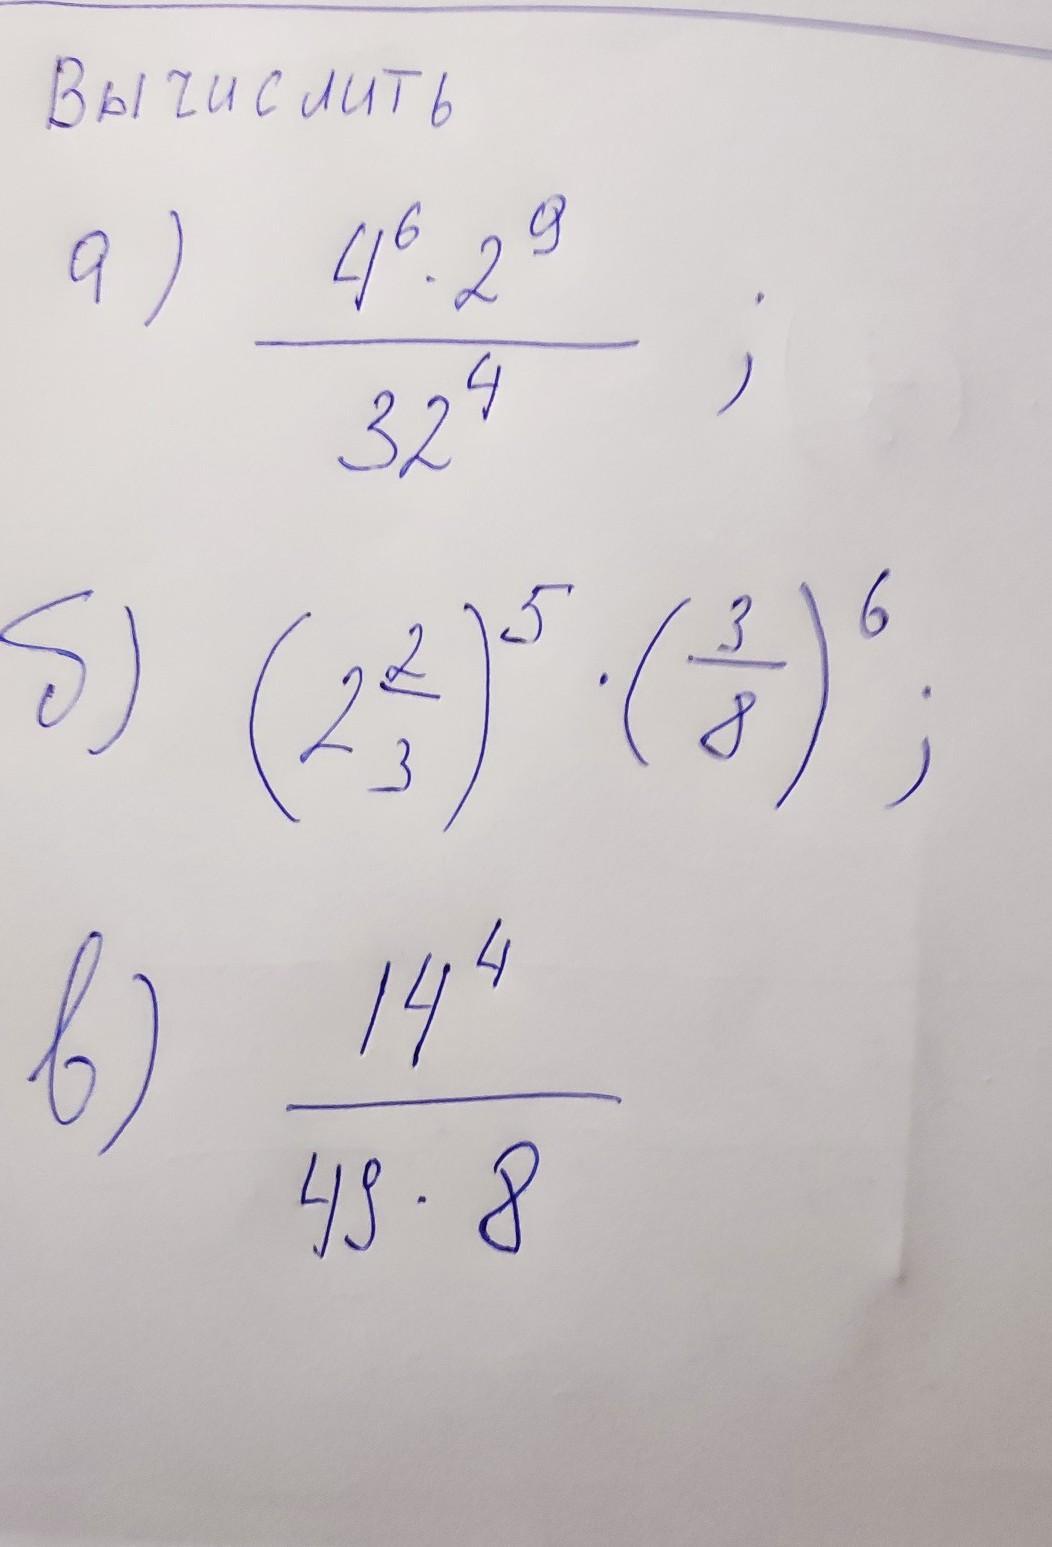 Вычислить
а) \frac{4^6 \cdot 2^9}{32^4} ;
б) \left(2\frac{2}{3}\right)^5 \cdot \left(\frac{3}{8}\right)^6 ;
в) \frac{14^4}{49 \cdot 8}